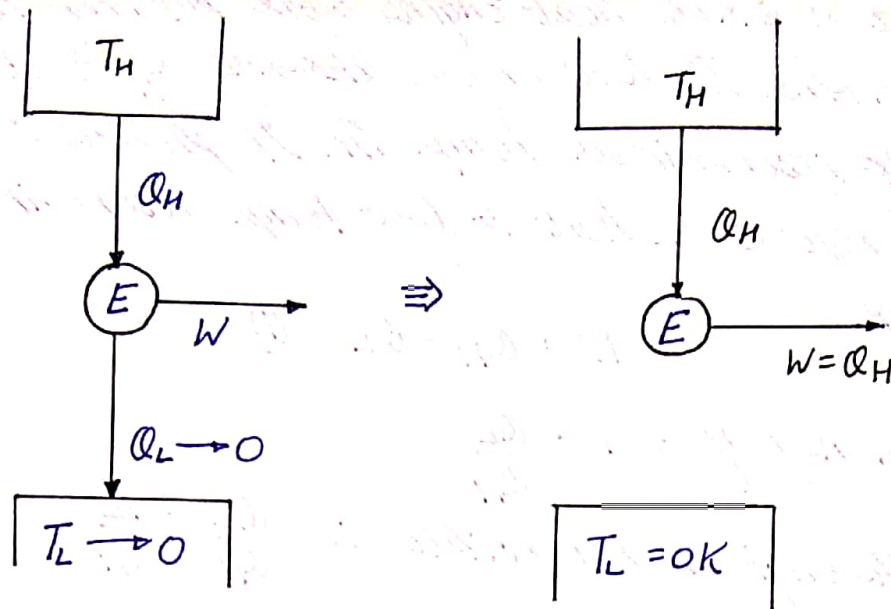 T_H
Q_H
E
W
Q_L → 0
T_L → 0
⇒
T_H
Q_H
E
W = Q_H
T_L = 0K